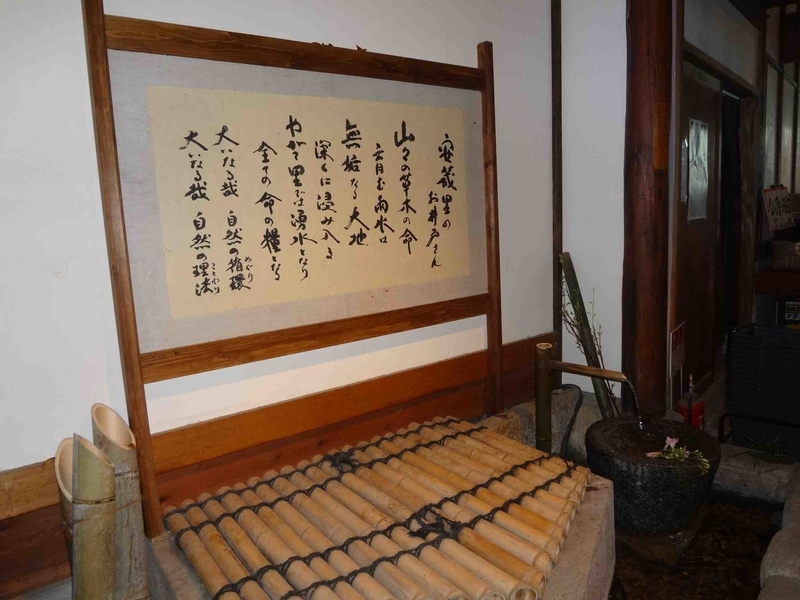 安蔵里の
お井戸さん
山々の草木の命
育む雨水は
無垢なる大地
深くに浸み入る
やがて里では湧水となり
全ての命の糧となる
大いなる哉 自然の循環
めぐり
大いなる哉 自然の理法
ことわり